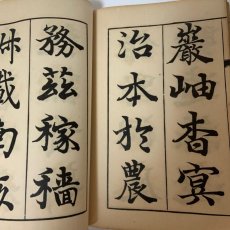 巖岫杳冥
治本於農
務茲稼穡
載南